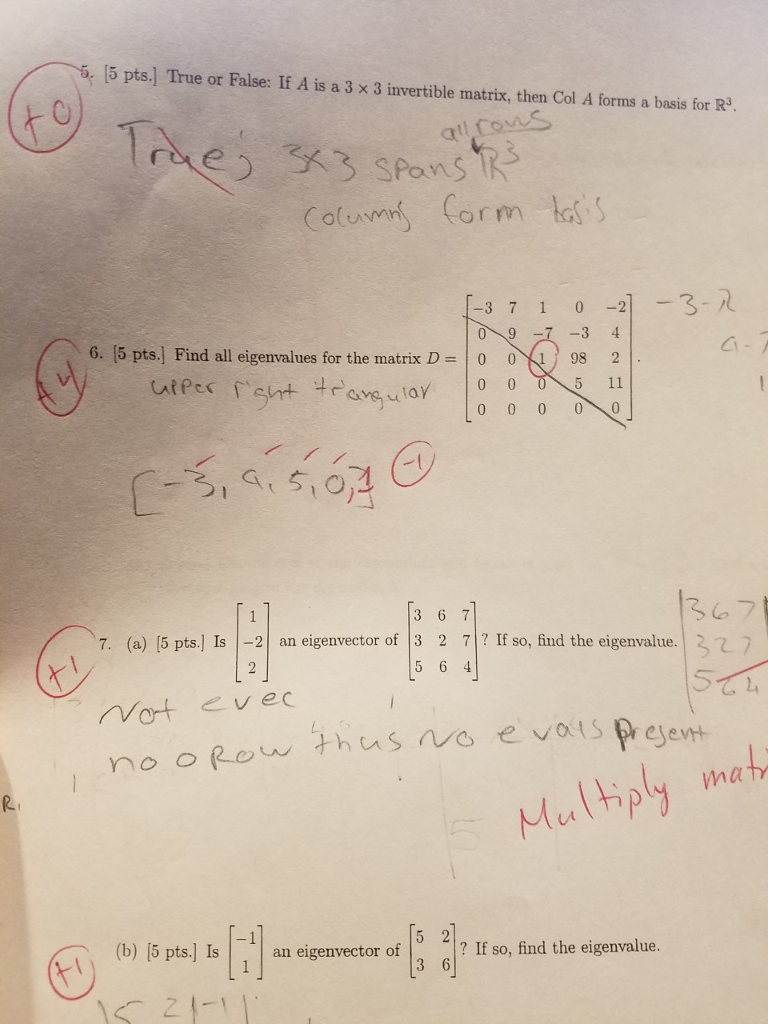 +0
5. [5 pts.] True or False: If A is a 3 × 3 invertible matrix, then Col A forms a basis for ℝ³.
all rows
True; 3x3 spans ℝ³
columns form basis
+4
6. [5 pts.] Find all eigenvalues for the matrix D =
-3 7 1 0 -2
0 9 -7 -3 4
0 0 1 98 2
0 0 0 5 11
0 0 0 0 0
-3-λ
9-
upper right triangular
[-3, 9, 5, 0, 1]
-1
+1
7. (a) [5 pts.] Is
1
-2
2
an eigenvector of
3 6 7
3 2 7
5 6 4
? If so, find the eigenvalue.
3 6 7
3 2 7
5 6 4
Not evec
no 0 Row thus no evals present
Multiply
R1
+1
(b) [5 pts.] Is
-1
1
an eigenvector of
5 2
3 6
? If so, find the eigenvalue.